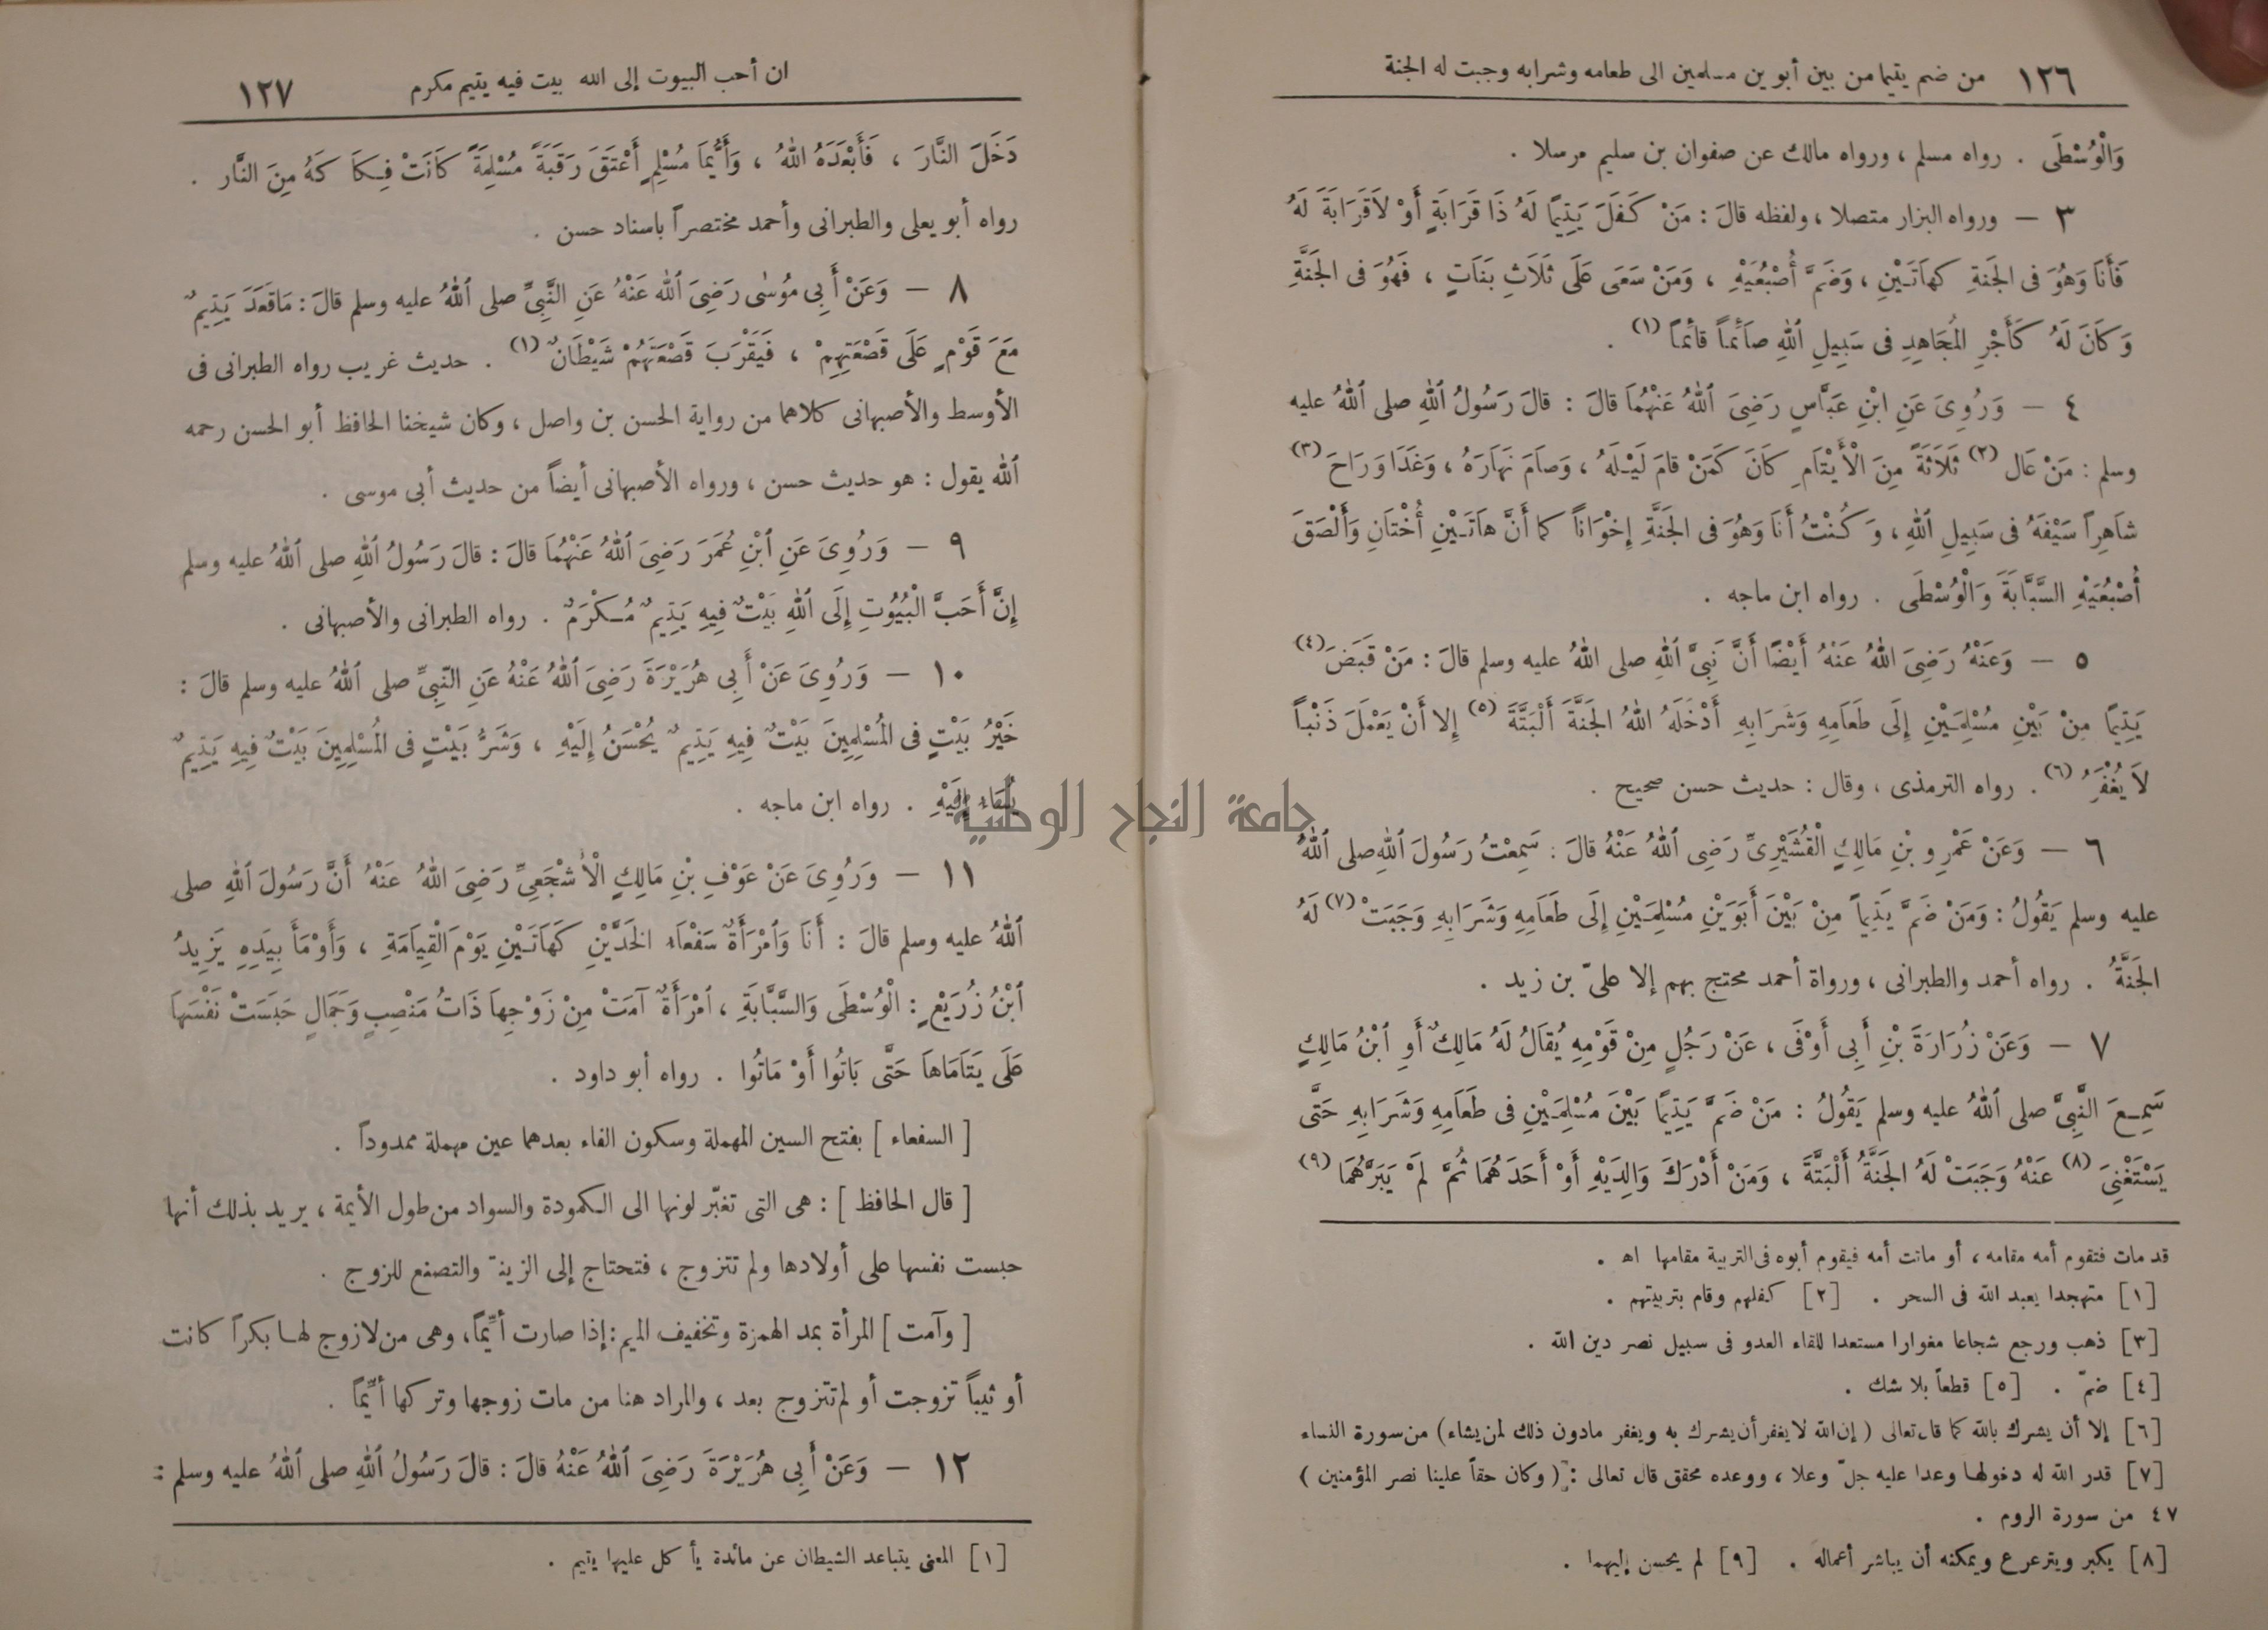 ١٢٦ من ضم يتيما من بين أبوين مسلمين الى طعامه وشرابه وجبت له الجنة
وَالْوُسْطَى . رواه مسلم ، ورواه مالك عن صفوان بن سليم مرسلا .
٣ — ورواه البزار متصلا ، ولفظه قالَ : مَنْ كَفَلَ يَتِيمًا لَهُ ذَا قَرَابَةٍ أَوْ لاَ قَرَابَةَ لَهُ
فَأَنَا وَهُوَ فى الجَنةِ كهاَتَيْنِ ، وَضَمَّ أُصْبُعَيْهِ ، وَمَنْ سَعَى عَلَى ثَلَاثِ بَنَاتٍ ، فَهُوَ فى الجَنَّةِ
وَكَانَ لَهُ كَأَجْرِ المُجَاهِدِ فى سَبِيلِ اللهِ صاَئماً قائماً (١) .
٤ — وَرُوِىَ عَنِ ابْنِ عَبَّاسٍ رَضِىَ اللهُ عَنْهُمَا قالَ : قالَ رَسُولُ اللهِ صلى اللهُ عليه
وسلم : مَنْ عَال (٢) ثَلَاثَةً مِنَ الْأَيْتَامِ كَانَ كَمَنْ قامَ لَيْلَهُ ، وَصَامَ نَهَارَهُ ، وَغَدَا وَرَاحَ (٣)
شاَهِراً سَيْفَهُ فى سَبِيلِ اللهِ ، وَكُنْتُ أَنَا وَهُوَ فى الجَنَّةِ إِخْوَانًا كما أَنَّ هاَتَيْنِ أُخْتَانِ وَأَلْصَقَ
أُصْبُعَيْهِ السَّبَّابَةَ وَالْوُسْطَى . رواه ابن ماجه .
٥ — وَعَنْهُ رَضِىَ اللهُ عَنْهُ أَيْضًا أَنَّ نَبِىَّ اللهِ صلى اللهُ عليه وسلم قالَ : مَنْ قَبَضَ (٤)
يَتِيمًا مِنْ بَيْنِ مُسْلِمَيْنِ إِلَى طَعَامِهِ وَشَرَابِهِ أَدْخَلَهُ اللهُ الجَنَّةَ أَلْبَتَّةَ (٥) إِلا أَنْ يَعْمَلَ ذَنْباً
لاَ يُغْفَرُ (٦) . رواه الترمذى ، وقال : حديث حسن صحيح .
٦ — وَعَنْ عَمْرِو بْنِ مَالِكٍ الْقُشَيْرِىِّ رَضِى اللهُ عَنْهُ قالَ : سَمِعْتُ رَسُولَ اللهِ صلى اللهُ
عليه وسلم يَقُولُ : وَمَنْ ضَمَّ يَتِيماً مِنْ بَيْنَ أَبَوَيْنِ مُسْلِمَيْنِ إِلَى طَعَامِهِ وَشَرَابِهِ وَجَبَتْ (٧) لَهُ
الجَنَّةُ . رواه أحمد والطبرانى ، ورواة أحمد محتج بهم إلا علىّ بن زيد .
٧ — وَعَنْ زُرَارَةَ بْنِ أَبِى أَوْفَى ، عَنْ رَجُلٍ مِنْ قَوْمِهِ يُقاَلُ لَهُ مَالِكٌ أَوِ ابْنُ مَالِكٍ
سَمِعَ النَّبِىَّ صلى اللهُ عليه وسلم يَقُولُ : مَنْ ضَمَّ يَتِيمًا بَيْنَ مُسْلِمَيْنِ فى طَعَامِهِ وَشَرَابِهِ حَتَّى
يَسْتَغْنِىَ (٨) عَنْهُ وَجَبَتْ لَهُ الجَنَّةُ أَلْبَتَّةَ ، وَمَنْ أَدْرَكَ وَالِدَيْهِ أَوْ أَحَدَهُمَا ثُمَّ لَمْ يَبَرَّهُمَا (٩)
قد مات فتقوم أمه مقامه ، أو ماتت أمه فيقوم أبوه فى التربية مقامها اه .
[١] متهجدا يعبد الله فى السحر . [٢] كفلهم وقام بتربيتهم .
[٣] ذهب ورجع شجاعا مغوارا مستعدا للقاء العدو فى سبيل نصر دين الله .
[٤] ضمّ . [٥] قطعاً بلا شك .
[٦] إلا أن يشرك بالله كما قال تعالى ( إن الله لا يغفر أن يشرك به ويغفر مادون ذلك لمن يشاء ) من سورة النساء
[٧] قدر الله له دخولها وعدا عليه جلّ وعلا ، ووعده محقق قال تعالى : ( وكان حقاً علينا نصر المؤمنين )
٤٧ من سورة الروم .
[٨] يكبر ويترعرع ويمكنه أن يباشر أعماله . [٩] لم يحسن إليهما .
ان أحب البيوت إلى الله بيت فيه يتيم مكرم ١٢٧
دَخَلَ النَّارَ ، فَأَبْعَدَهُ اللهُ ، وَأَيُّمَا مُسْلِمٍ أَعْتَقَ رَقَبَةً مُسْلِمَةً كَانَتْ فِكاَكَهُ مِنَ النَّار .
رواه أبو يعلى والطبرانى وأحمد مختصراً باسناد حسن .
٨ — وَعَنْ أَبِى مُوسٰى رَضِىَ الله عَنْهُ عَنِ النَّبِىِّ صلى اللهُ عليه وسلم قالَ : مَاقَعَدَ يَتِيمٌ
مَعَ قَوْمٍ عَلَى قَصْعَتِهِمْ ، فَيَقْرَبَ قَصْعَتَهُمْ شَيْطَانٌ (١) . حديث غريب رواه الطبرانى فى
الأوسط والأصبهانى كلاهما من رواية الحسن بن واصل ، وكان شيخنا الحافظ أبو الحسن رحمه
الله يقول : هو حديث حسن ، ورواه الأصبهانى أيضاً من حديث أبى موسى .
٩ — وَرُوِىَ عَنِ ابْنِ عُمَرَ رَضِىَ اللهُ عَنْهُمَا قالَ : قالَ رَسُولُ اللهِ صلى اللهُ عليه وسلم
إِنَّ أَحَبَّ الْبُيُوتِ إِلَى اللهِ بَيْتٌ فِيهِ يَتِيمٌ مُكْرَمٌ . رواه الطبرانى والأصبهانى .
١٠ — وَرُوِىَ عَنْ أَبِى هُرَيْرَةَ رَضِىَ اللهُ عَنْهُ عَنِ النَّبِىِّ صلى اللهُ عليه وسلم قالَ :
خَيْرُ بَيْتٍ فى المُسْلِمِينَ بَيْتٌ فِيهِ يَتِيمٌ يُحْسَنُ إِلَيْهِ ، وَشَرُّ بَيْتٍ فى المُسْلِمِينَ بَيْتٌ فِيهِ يَتِيمٌ
يُسَاءُ إِلَيْهِ . رواه ابن ماجه .
جامعة النجاح الوطنية
١١ — وَرُوِىَ عَنْ عَوْفِ بْنِ مَالِكٍ الْأَشْجَعِىِّ رَضِىَ اللهُ عَنْهُ أَنَّ رَسُولَ اللهِ صلى
اللهُ عليه وسلم قالَ : أَنَا وَامْرَأَةٌ سَفْعَاءُ الخَدَّيْنِ كَهَاتَيْنِ يَوْمَ الْقِيَامَةِ ، وَأَوْمَأَ بِيَدِهِ يَزِيدُ
ابْنُ زُرَيْعٍ : الْوُسْطَى وَالسَّبَّابَةِ ، امْرَأَةٌ آمَتْ مِنْ زَوْجِهاَ ذَاتُ مَنْصِبٍ وَجَمَالٍ حَبَسَتْ نَفْسَهَا
عَلَى يَتَامَاهاَ حَتَّى بَاتُوا أَوْ مَاتُوا . رواه أبو داود .
[ السفعاء ] بفتح السين المهملة وسكون الفاء بعدهما عين مهملة ممدوداً .
[ قال الحافظ ] : هى التى تغبّر لونها الى الكمودة والسواد من طول الأيمة ، يريد بذلك أنها
حبست نفسها على أولادها ولم تتزوج ، فتحتاج إلى الزينة والتصنع للزوج .
[ وآمت ] المرأة بمد الهمزة وتخفيف الميم : إذا صارت أيِّماً ، وهى من لازوج لها بكراً كانت
أو ثيباً تزوجت أو لم تتزوج بعد ، والمراد هنا من مات زوجها وتركها أيِّماً .
١٢ — وَعَنْ أَبِى هُرَيْرَةَ رَضِىَ اللهُ عَنْهُ قالَ : قالَ رَسُولُ اللهِ صلى اللهُ عليه وسلم :
[١] المعنى يتباعد الشيطان عن مائدة يأكل عليها يتيم .